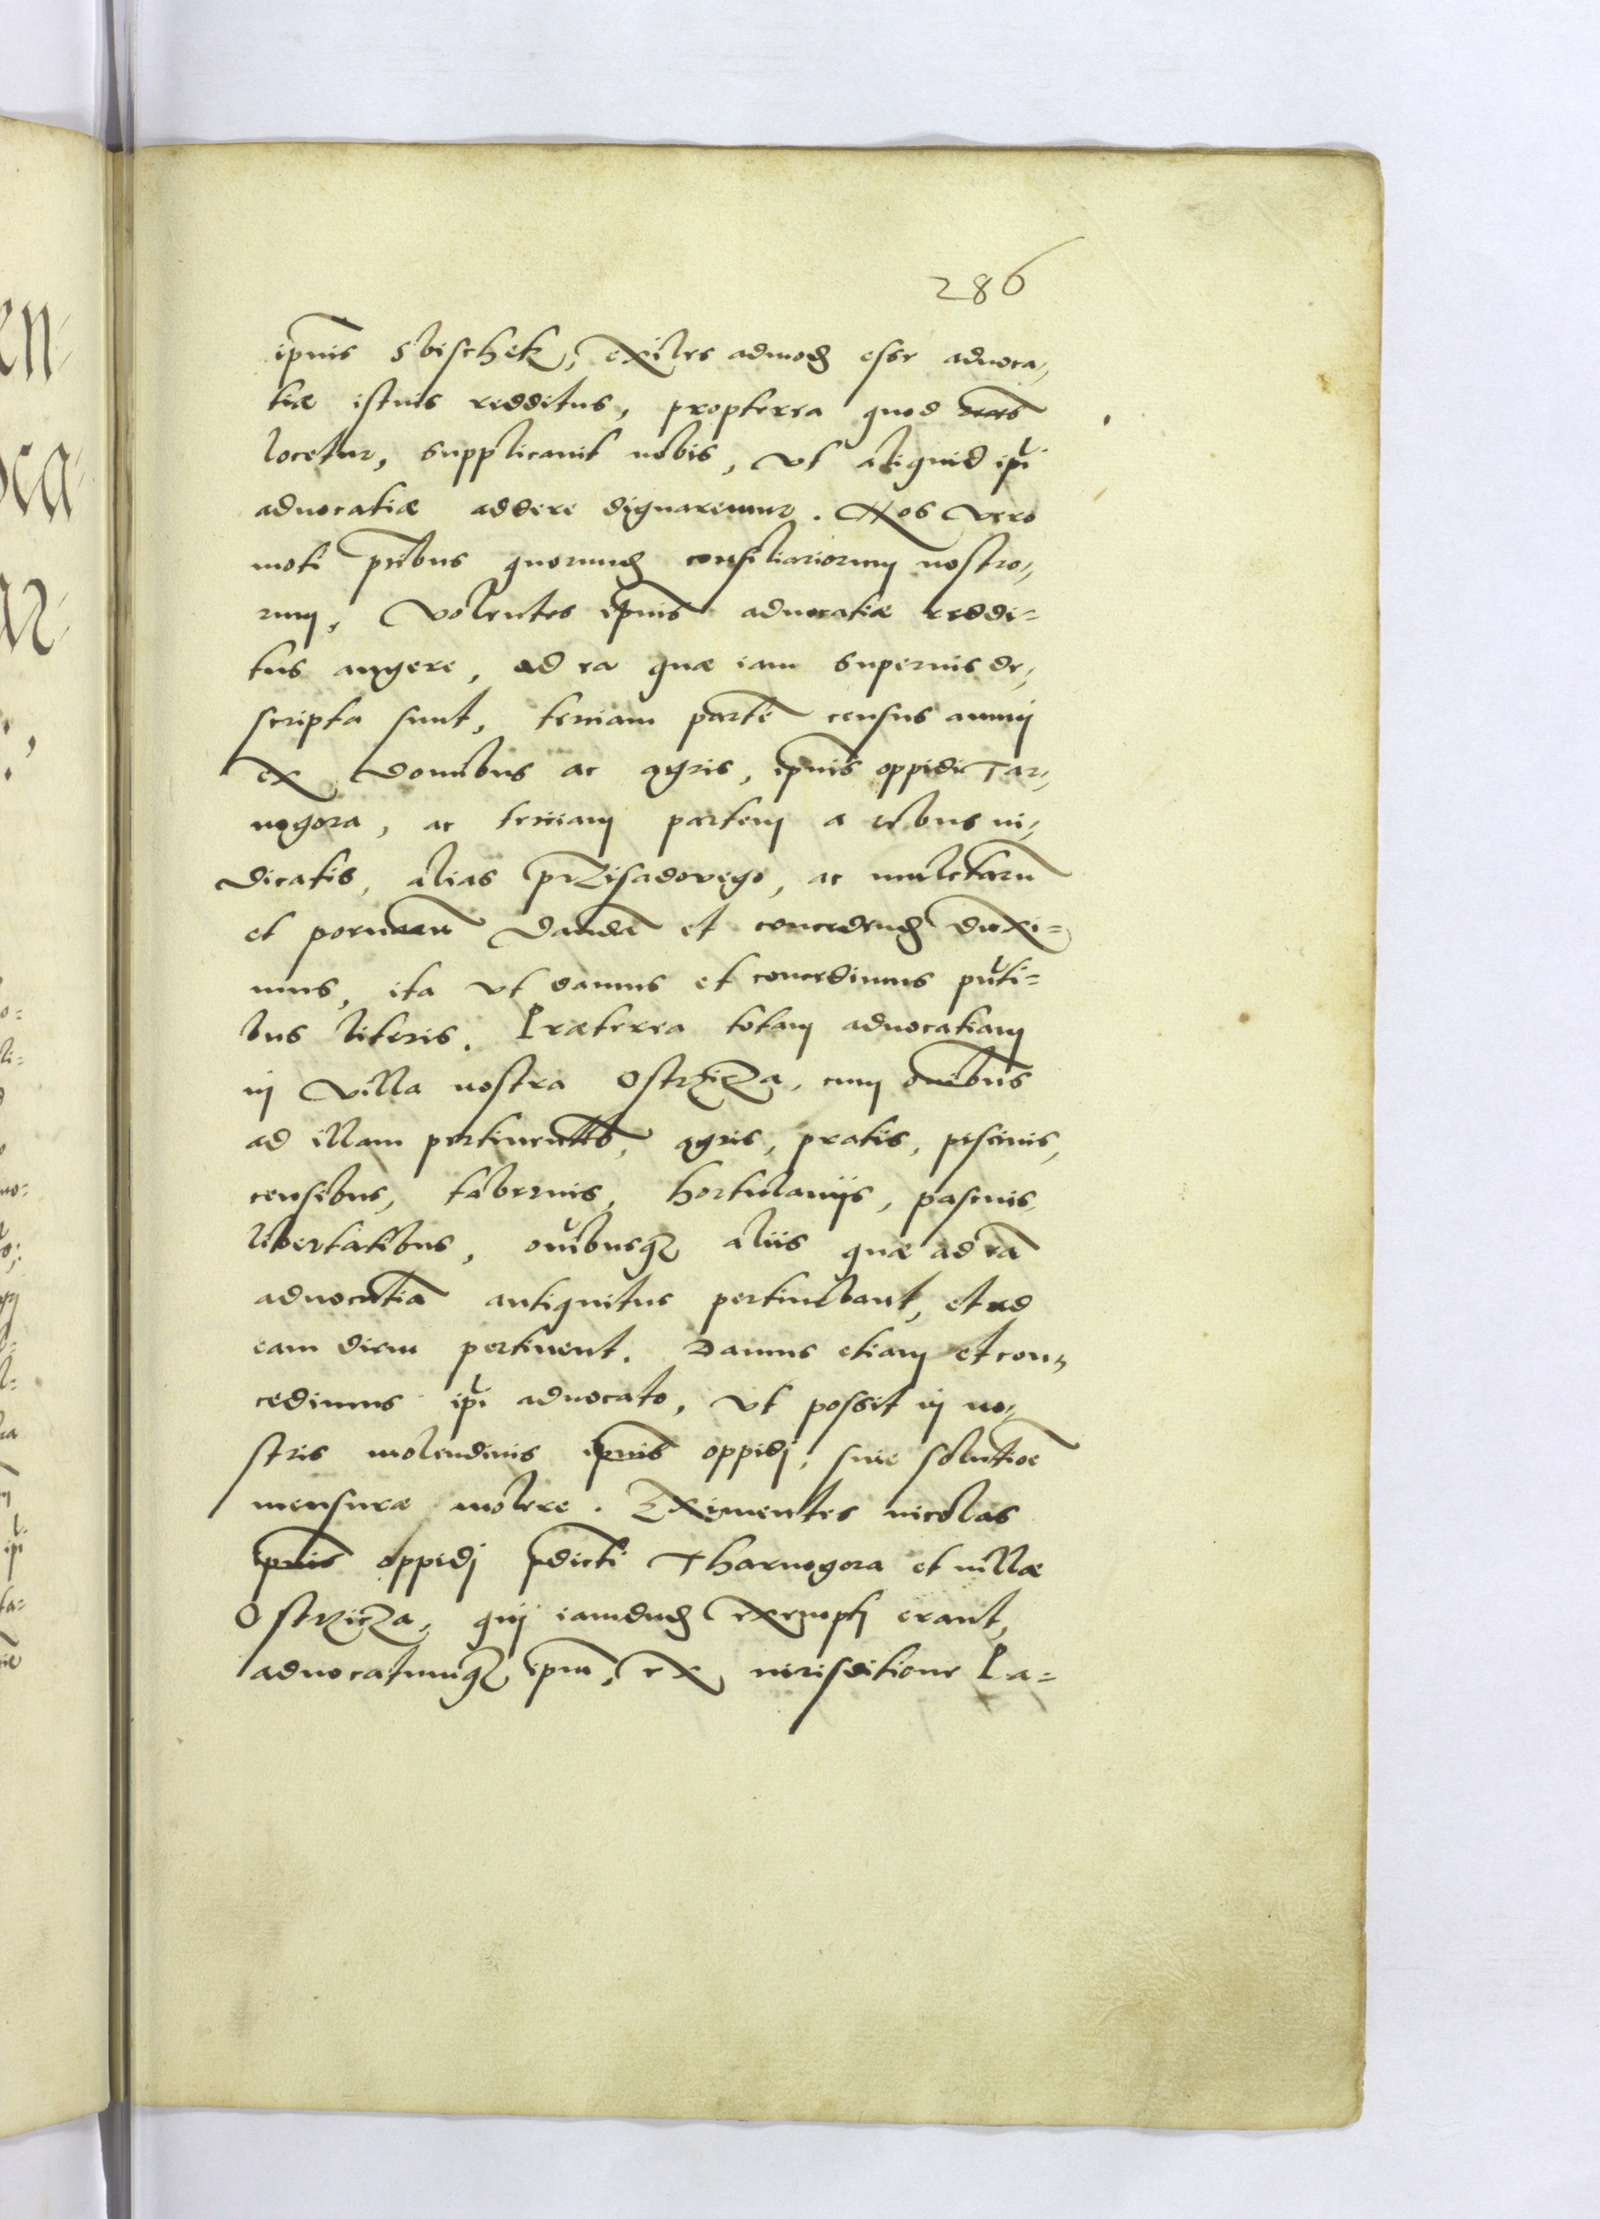 286
ipīus Sbischek, exiles admod esse advoca,
tiæ istius redditus, propterea quod
locetur, supplicauit nobis, vt aliquid ipi
aduocatiæ addere dignaremur. Nos vero
moti p̄cibus quorund consiliariorum nostro,
rum, volentes ipīus aduocatiæ reddi=
tus augere, ad ea quæ iam superius de,
scripta sunt, terciam partē census annui
ex domibus ac agris, ipīus oppidi Tar,
nogora, ac terciam partem a rebus iu,
dicatis, alias przisadowego, ac mulctarū
et poenarū dandā et concedend duxi=
mus, ita vt damus et concedimus pnti=
bus literis. Præterea totam aduocatiam
in villa nostra Ostrzicza, cum oībus
ad illam pertinentib, agris, pratis, piscinis,
censibus, tabernis, hortulaniis, pascuis,
libertatibus, oibusq aliis quæ ad eā
aduocatiā antiquitus pertinebant, et ad
eam diem pertinent. Damus etiam et con,
cedimus ipi aduocato, vt possit in no,
stris molendinis ipīus oppidi, sine solutioē
mensuræ molere. Eximentes incolas
ipīus oppidi p̄dicti Tharnogora et uillæ
Ostrzicza, qui iamdud exempti erant,
aduocatumq ipm, ex iurisditione Pa=
en=
oca=
ar=